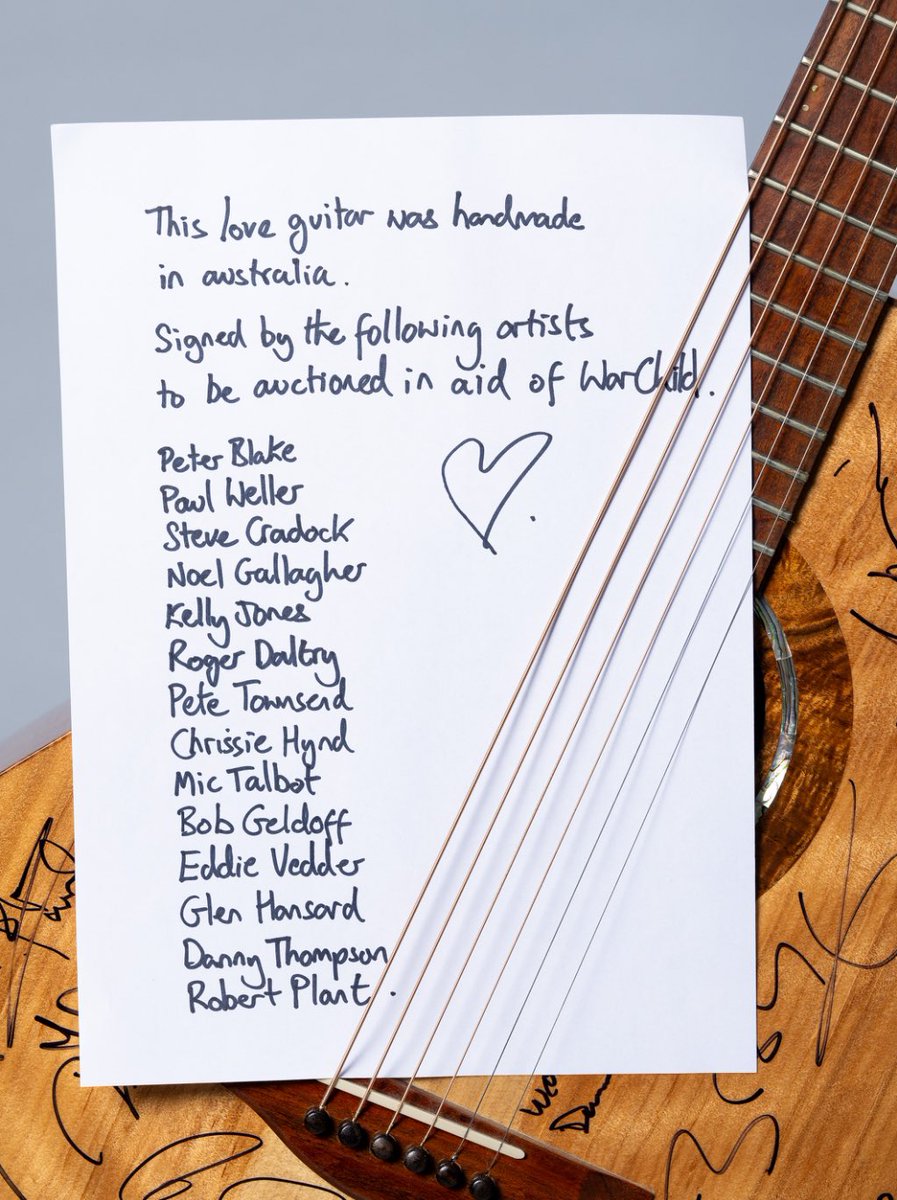 This love guitar was handmade
in australia.
Signed by the following artists
to be auctioned in aid of WarChild.
Peter Blake
Paul Weller
Steve Cradock
Noel Gallagher
Kelly Jones
Roger Daltry
Pete Townsend
Chrissie Hynd
Mic Talbot
Bob Geldoff
Eddie Vedder
Glen Hansard
Danny Thompson
Robert Plant.